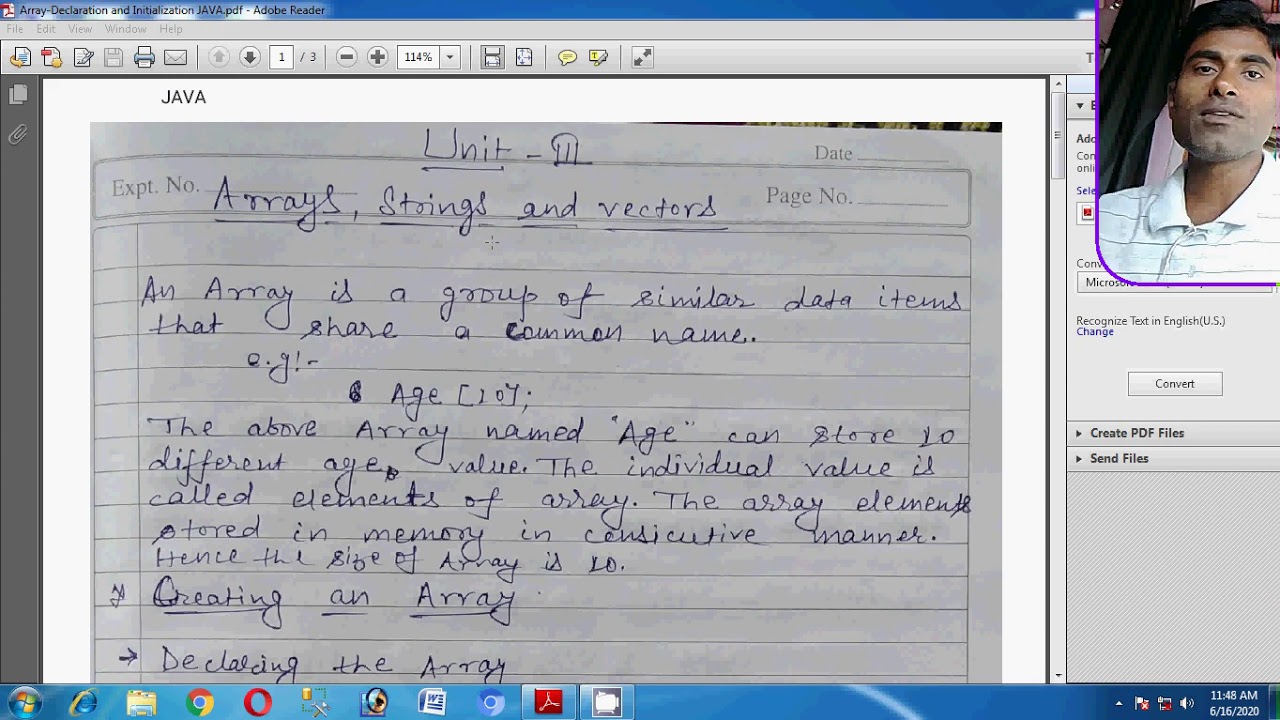 Array-Declaration and Initialization JAVA.pdf - Adobe Reader
File Edit View Window Help
1 / 3 114%
JAVA
Unit - III
Date
Expt. No.
Page No.
Arrays, Strings and vectors
An Array is a group of similar data items
that share a common name.
e.g:-
Age [10];
The above Array named "Age" can store 10
different age value. The individual value is
called elements of array. The array elements
stored in memory in consicutive manner.
Hence the size of Array is 10.
Creating an Array
→ Declaring the Array
Ado
Con
onli
Sele
Conv
Microso
Recognize Text in English(U.S.)
Change
Convert
Create PDF Files
Send Files
11:48 AM
6/16/2020